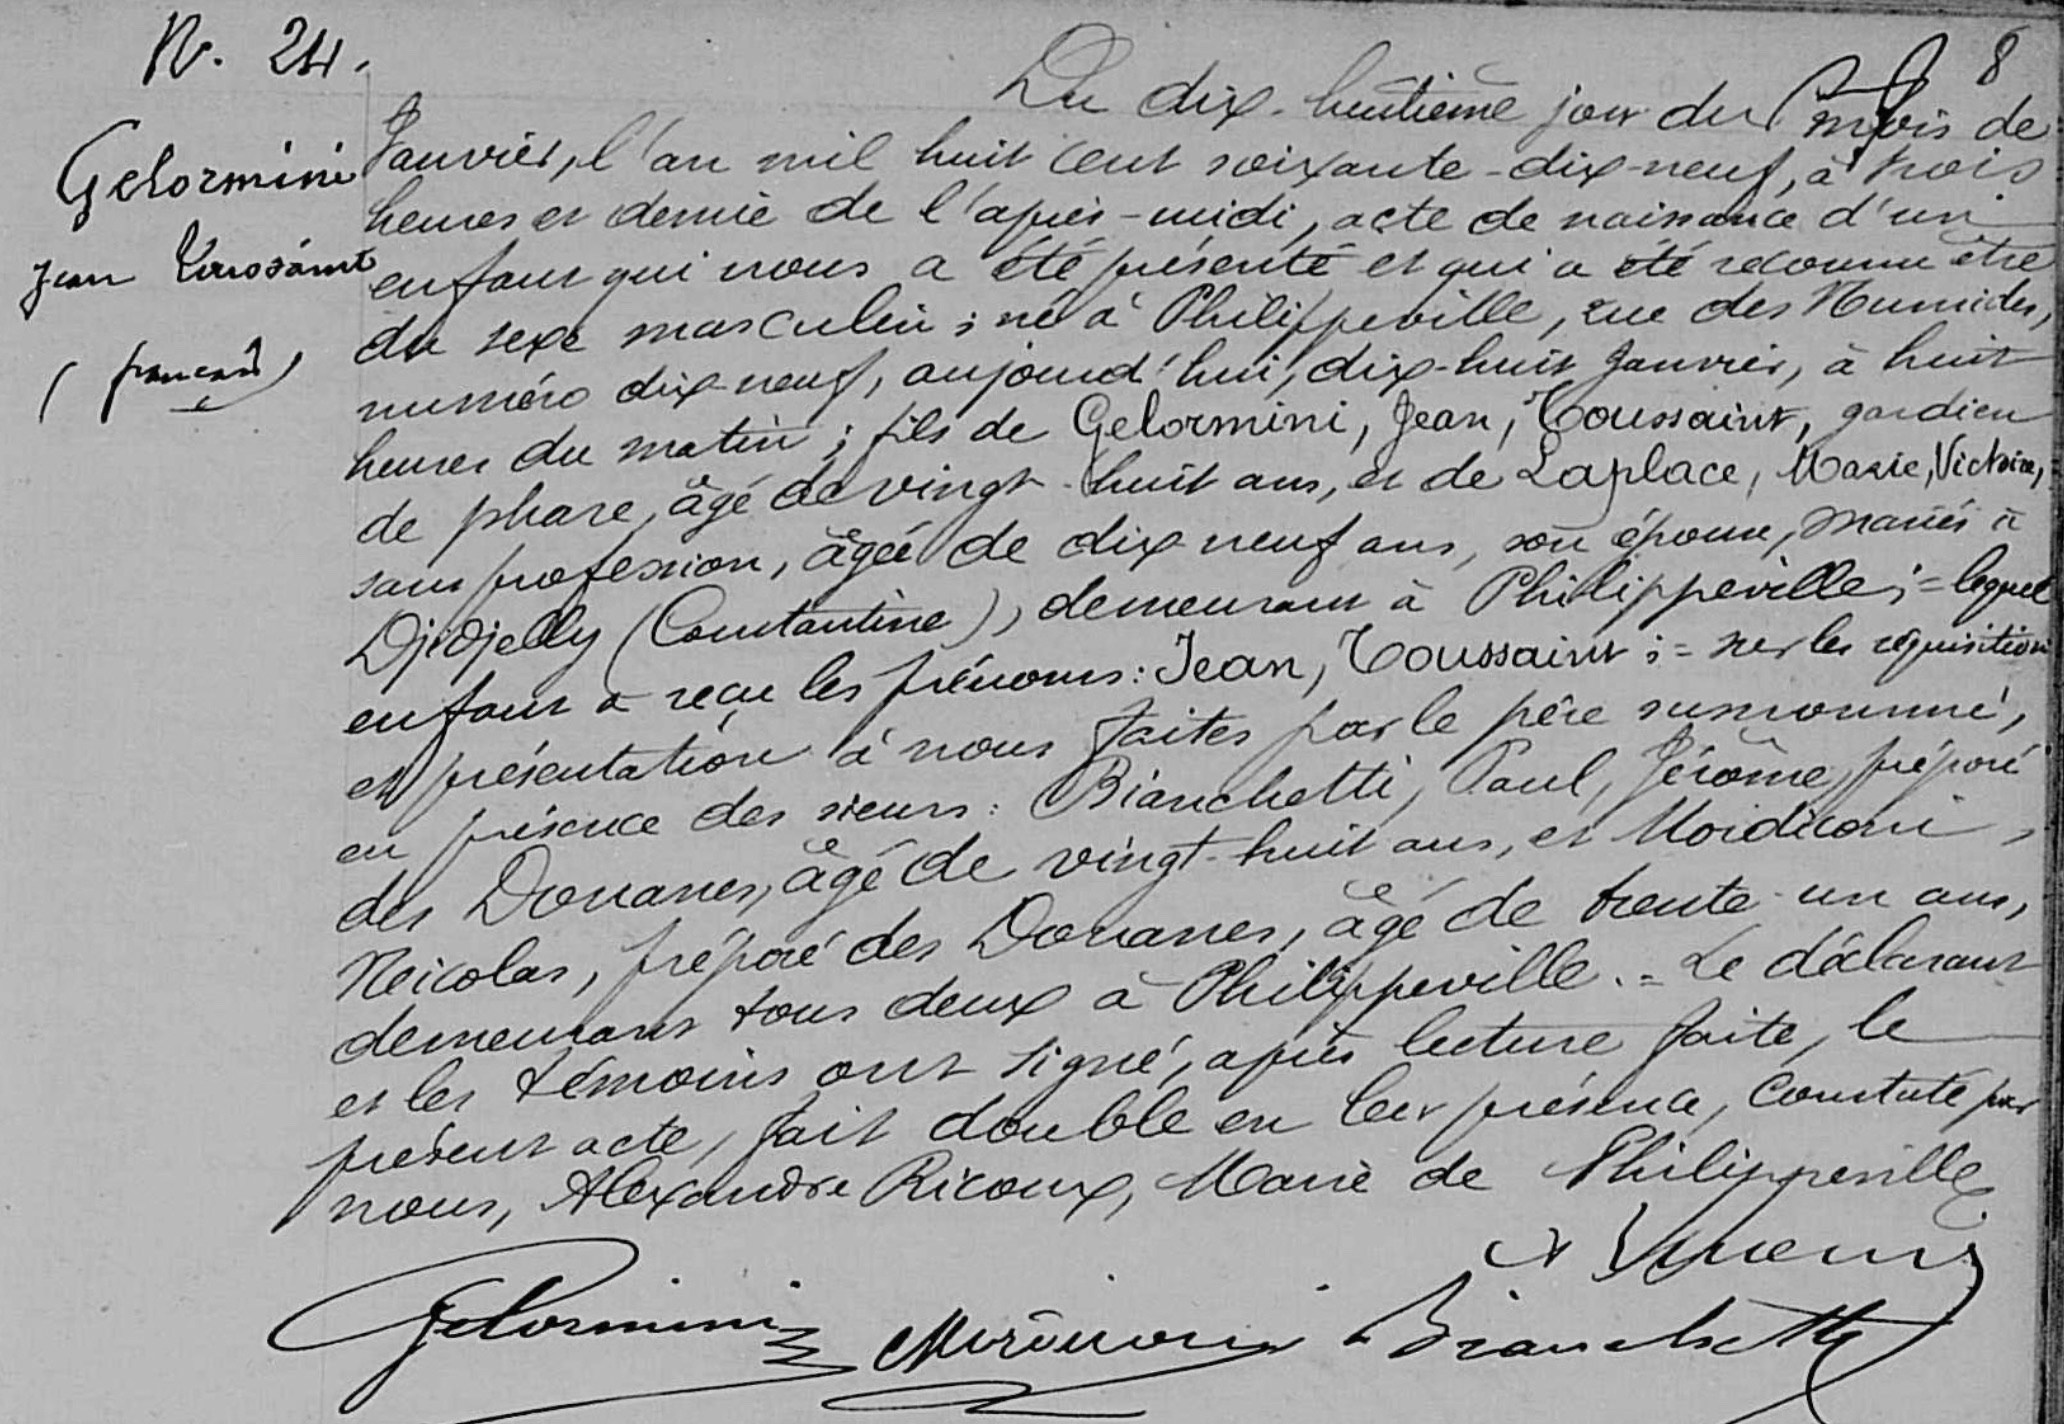 N. 24.
8
Gelormini
Jean Toussaint
(français)
Du dix-huitième jour du mois de
Janvier, l'an mil huit cent soixante-dix-neuf, à trois
heures et demie de l'après-midi, acte de naissance d'un
enfant qui nous a été présenté et qui a été reconnu être
du sexe masculin ; né à Philippeville, rue des Numides,
numéro dix-neuf, aujourd'hui, dix-huit Janvier, à huit
heures du matin ; fils de Gelormini, Jean, Toussaint, gardien
de phare, âgé de vingt-huit ans, et de Laplace, Marie, Victoire,
sans profession, âgée de dix neuf ans, son épouse, mariés à
Djidjelly (Constantine), demeurant à Philippeville ; = lequel
enfant a reçu les prénoms : Jean, Toussaint ; = sur les réquisition
et présentation à nous faites par le père susnommé,
en présence des sieurs : Bianchetti, Paul, Jérôme, préposé
des Douanes, âgé de vingt-huit ans, et Mordiconi,
Neicolas, préposé des Douanes, âgé de trente-un ans,
demeurant tous deux à Philippeville. = Le déclarant
et les témoins ont signé, après lecture faite, le
présent acte, fait double en leur présence, constaté par
nous, Alexandre Ricoux, Maire de Philippeville
Gelormini Bianchetti